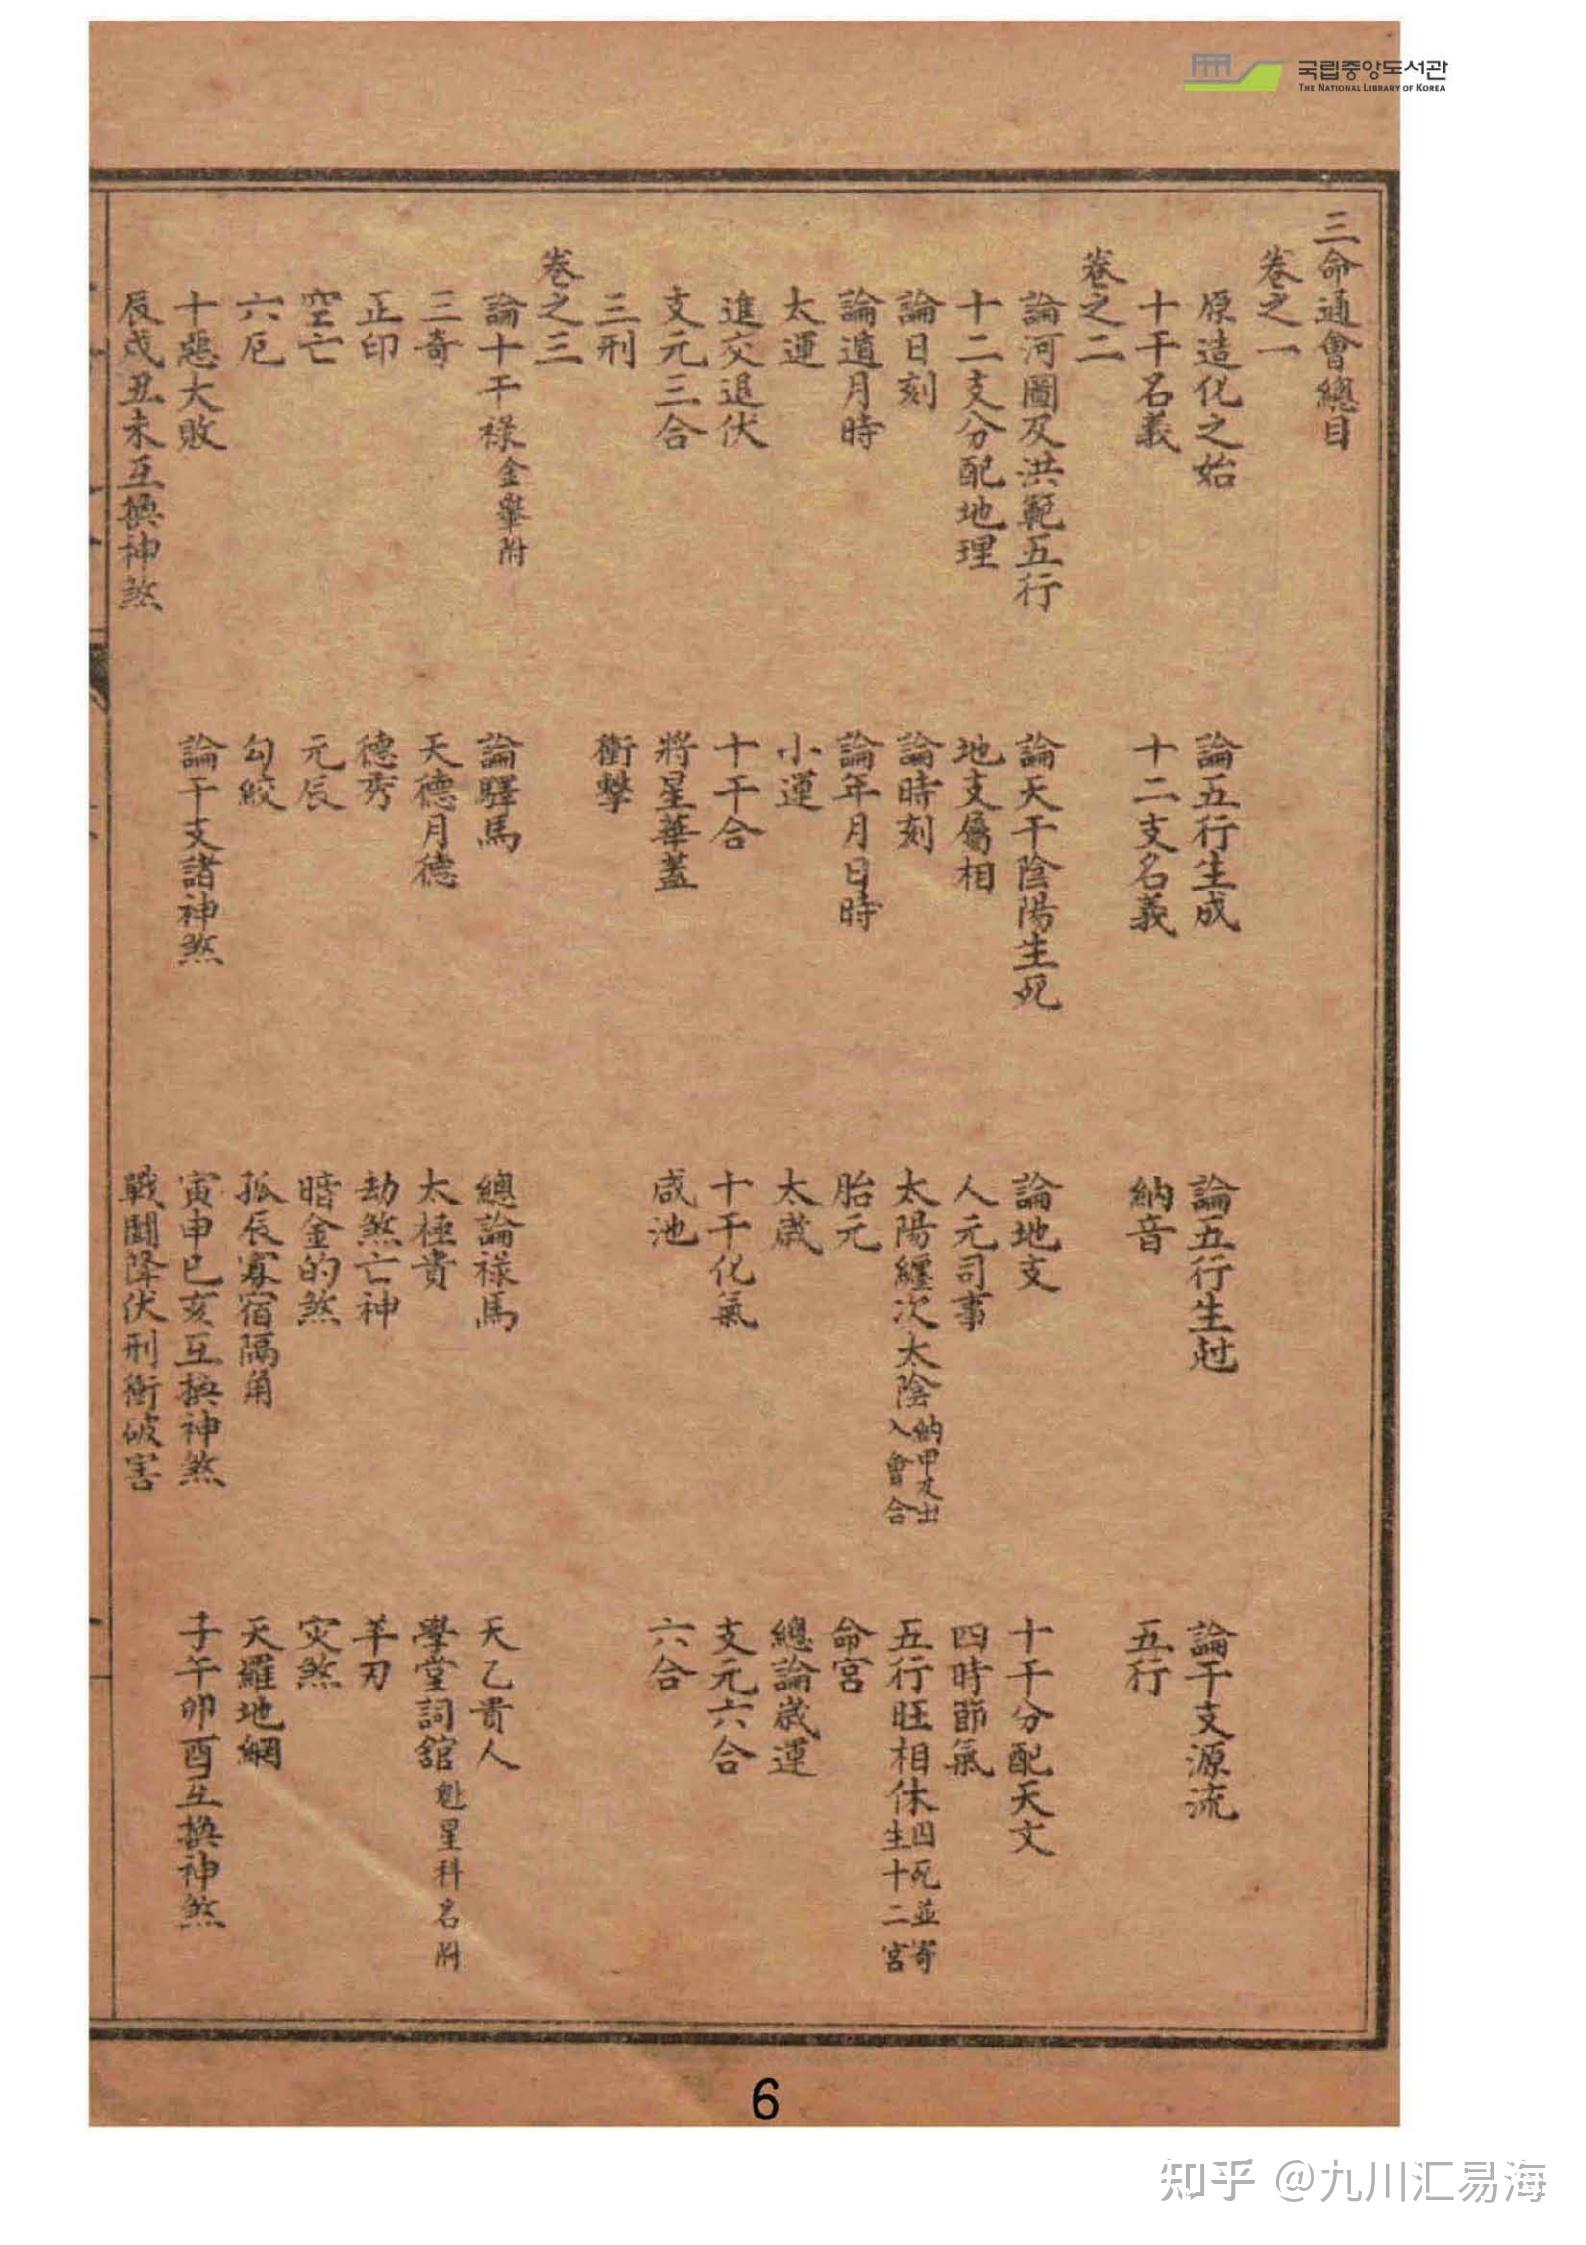 국립중앙도서관
THE NATIONAL LIBRARY OF KOREA
三命通會總目
卷之一
原造化之始 論五行生成 論五行生尅 論干支源流
十干名義 十二支名義 納音 五行
卷之二
論河圖及洪範五行 論天干陰陽生死 論地支 十干分配天文
十二支分配地理 地支屬相 人元司事 四時節氣
論日刻 論時刻 太陽纏次太陰納甲及出入會合 五行旺相休囚死並寄生十二宮
論遁月時 論年月日時 胎元 命宮
太運 小運 太歲 總論歲運
進交退伏 十干合 十干化氣 支元六合
支元三合 將星華蓋 咸池 六合
三刑 衝擊
卷之三
論十干祿金轝附 論驛馬 總論祿馬 天乙貴人
三奇 天德月德 太極貴 學堂詞舘魁星科名附
正印 德秀 劫煞亡神 羊刃
空亡 元辰 暗金的煞 灾煞
六厄 勾絞 孤辰寡宿隔角 天羅地網
十惡大敗 論干支諸神煞 寅申巳亥互換神煞 子午卯酉互換神煞
辰戌丑未互換神煞 戰鬪降伏刑衝破害
6
知乎 @九川汇易海